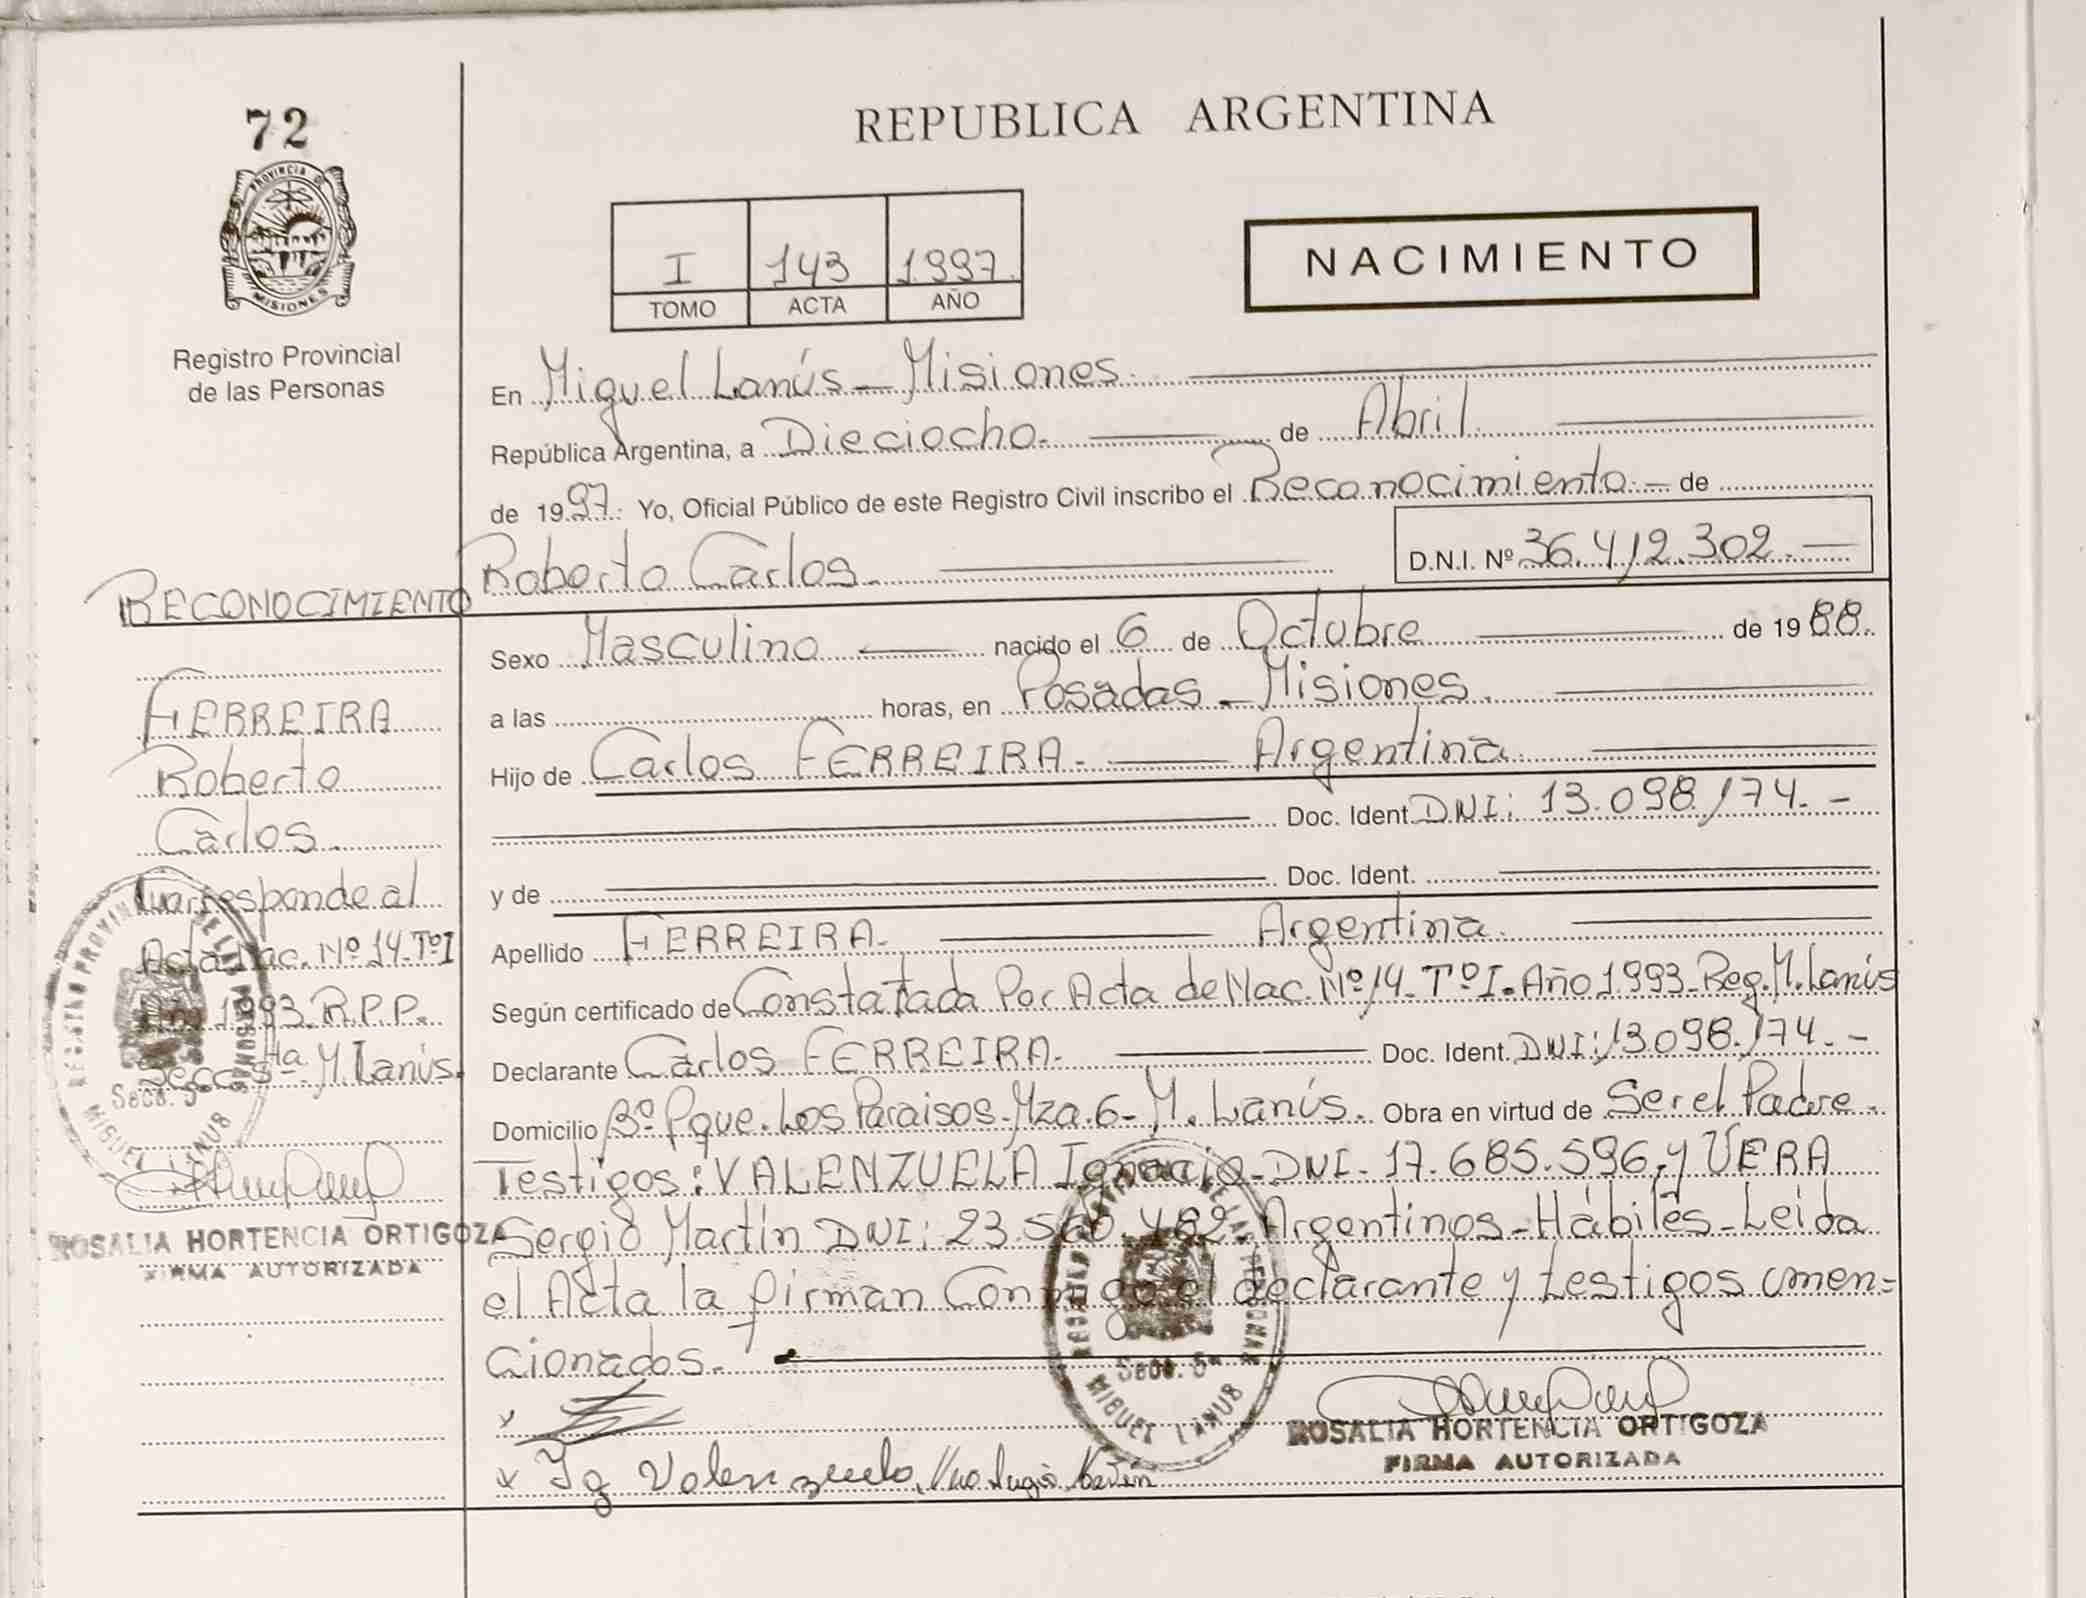 72
PROVINCIA DE
MISIONES
Registro Provincial
de las Personas
REPUBLICA ARGENTINA
I 143 1997.
TOMO ACTA AÑO
NACIMIENTO
En Miguel Lanús - Misiones.
República Argentina, a Dieciocho. de Abril.
de 1997. Yo, Oficial Público de este Registro Civil inscribo el Reconocimiento - de
Roberto Carlos. D.N.I. Nº 36.412.302. -
Sexo Masculino nacido el 6 de Octubre de 1988.
a las horas, en Posadas - Misiones.
Hijo de Carlos FERREIRA. - Argentina.
Doc. Ident. DNI: 13.098.174. -
y de Doc. Ident.
Apellido FERREIRA. Argentina.
Según certificado de Constatada Por Acta de Nac. Nº 14. Tº I. Año 1.993. Reg. M. Lanús
Declarante Carlos FERREIRA. Doc. Ident. DNI: 13.098.174. -
Domicilio Bº Pque. Los Paraisos. Mza. 6 - M. Lanús. Obra en virtud de Ser el Padre.
Testigos: VALENZUELA Ignacio. DNI. 17.685.596, y VERA
Sergio Martín DNI: 23. Argentinos - Hábiles - Leida
el Acta la firman Conmigo el declarante y testigos men=
cionados.
RECONOCIMIENTO
FERREIRA
Roberto
Carlos.
al
Acta Nac. Nº 14. Tº I
1993. R.P.P.
Secc. 5ta. M. Lanús.
REGISTRO PROVIN DE LAS PERSONAS
Secc. 5ª
MIGUEL LANUS
ROSALIA HORTENCIA ORTIGOZA
FIRMA AUTORIZADA
DE LAS PERSONAS
Secc. 5ª
MIGUEL LANUS
x
x Ig Valenzuela
ROSALIA HORTENCIA ORTIGOZA
FIRMA AUTORIZADA